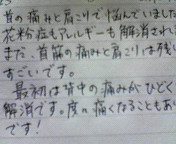 首の痛みと肩こりで悩んでいました
花粉症もアレルギーも解消され
まだ、首筋の痛みと肩こりは残
すごいです。
最初は背中の痛みがひどく
解消です。度々痛くなることもあ
です!